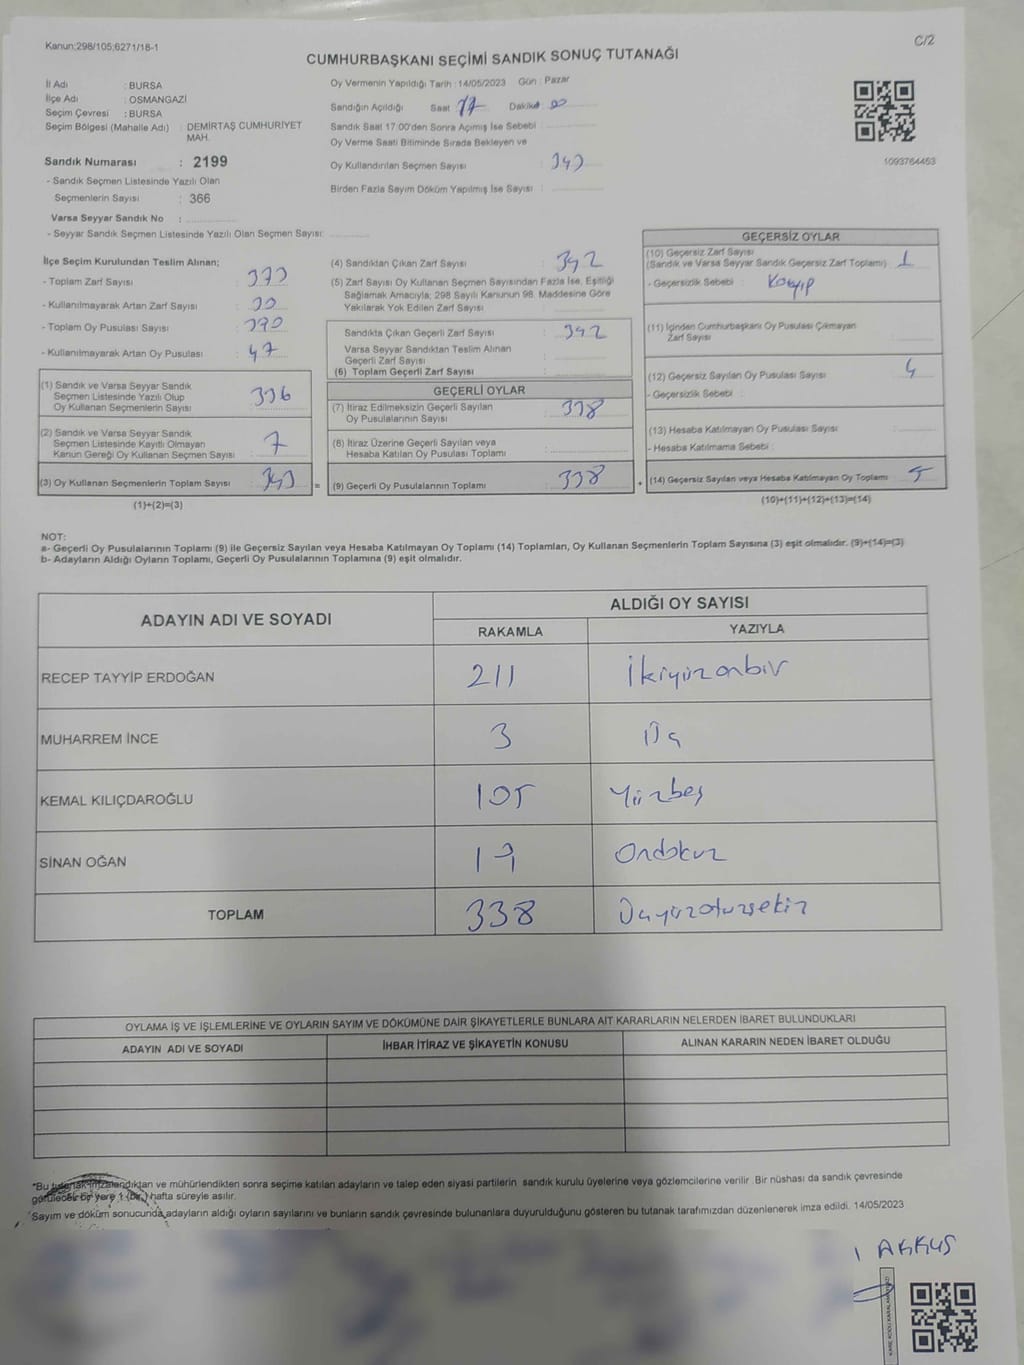 Kanun;298/105;6271/18-1
C/2
CUMHURBAŞKANI SEÇİMİ SANDIK SONUÇ TUTANAĞI
İl Adı : BURSA
İlçe Adı : OSMANGAZİ
Seçim Çevresi : BURSA
Seçim Bölgesi (Mahalle Adı) : DEMİRTAŞ CUMHURİYET
MAH.
Sandık Numarası : 2199
- Sandık Seçmen Listesinde Yazılı Olan
Seçmenlerin Sayısı : 366
Varsa Seyyar Sandık No :
- Seyyar Sandık Seçmen Listesinde Yazılı Olan Seçmen Sayısı:
Oy Vermenin Yapıldığı Tarih : 14/05/2023 Gün : Pazar
Sandığın Açıldığı Saat 17 Dakika 00
Sandık Saat 17.00'den Sonra Açımış İse Sebebi :
Oy Verme Saati Bitiminde Sırada Bekleyen ve
Oy Kullandırılan Seçmen Sayısı : 343
Birden Fazla Sayım Döküm Yapılmış İse Sayısı :
1093764453
İlçe Seçim Kurulundan Teslim Alınan;
- Toplam Zarf Sayısı : 373
- Kullanılmayarak Artan Zarf Sayısı : 30
- Toplam Oy Pusulası Sayısı : 390
- Kullanılmayarak Artan Oy Pusulası : 47
(1) Sandık ve Varsa Seyyar Sandık
Seçmen Listesinde Yazılı Olup
Oy Kullanan Seçmenlerin Sayısı : 336
(2) Sandık ve Varsa Seyyar Sandık
Seçmen Listesinde Kayıtlı Olmayan
Kanun Gereği Oy Kullanan Seçmen Sayısı : 7
(3) Oy Kullanan Seçmenlerin Toplam Sayısı : 343 =
(1)+(2)=(3)
(4) Sandıktan Çıkan Zarf Sayısı : 342
(5) Zarf Sayısı Oy Kullanan Seçmen Sayısından Fazla İse, Eşitliği
Sağlamak Amacıyla; 298 Sayılı Kanunun 98. Maddesine Göre
Yakılarak Yok Edilen Zarf Sayısı :
Sandıkta Çıkan Geçerli Zarf Sayısı : 342
Varsa Seyyar Sandıktan Teslim Alınan
Geçerli Zarf Sayısı :
(6) Toplam Geçerli Zarf Sayısı :
GEÇERLİ OYLAR
(7) İtiraz Edilmeksizin Geçerli Sayılan
Oy Pusulalarının Sayısı : 338
(8) İtiraz Üzerine Geçerli Sayılan veya
Hesaba Katılan Oy Pusulası Toplamı :
(9) Geçerli Oy Pusulalarının Toplamı : 338 +
GEÇERSİZ OYLAR
(10) Geçersiz Zarf Sayısı
(Sandık ve Varsa Seyyar Sandık Geçersiz Zarf Toplamı) : 1
- Geçersizlik Sebebi : Kayıp
(11) İçinden Cumhurbaşkanı Oy Pusulası Çıkmayan
Zarf Sayısı :
(12) Geçersiz Sayılan Oy Pusulası Sayısı : 4
- Geçersizlik Sebebi :
(13) Hesaba Katılmayan Oy Pusulası Sayısı :
- Hesaba Katılmama Sebebi :
(14) Geçersiz Sayılan veya Hesaba Katılmayan Oy Toplamı : 5
(10)+(11)+(12)+(13)=(14)
NOT:
a- Geçerli Oy Pusulalarının Toplamı (9) ile Geçersiz Sayılan veya Hesaba Katılmayan Oy Toplamı (14) Toplamları, Oy Kullanan Seçmenlerin Toplam Sayısına (3) eşit olmalıdır. (9)+(14)=(3)
b- Adayların Aldığı Oyların Toplamı, Geçerli Oy Pusulalarının Toplamına (9) eşit olmalıdır.
ADAYIN ADI VE SOYADI
ALDIĞI OY SAYISI
RAKAMLA YAZIYLA
RECEP TAYYİP ERDOĞAN 211 İkiyüzonbir
MUHARREM İNCE 3 Üç
KEMAL KILIÇDAROĞLU 105 Yüzbeş
SİNAN OĞAN 19 Ondokuz
TOPLAM 338 Üçyüzotuzsekiz
OYLAMA İŞ VE İŞLEMLERİNE VE OYLARIN SAYIM VE DÖKÜMÜNE DAİR ŞİKAYETLERLE BUNLARA AİT KARARLARIN NELERDEN İBARET BULUNDUKLARI
ADAYIN ADI VE SOYADI İHBAR İTİRAZ VE ŞİKAYETİN KONUSU ALINAN KARARIN NEDEN İBARET OLDUĞU
*Bu tutanak imzalandıktan ve mühürlendikten sonra seçime katılan adayların ve talep eden siyasi partilerin sandık kurulu üyelerine veya gözlemcilerine verilir. Bir nüshası da sandık çevresinde
görülecek bir yere 1 (bir) hafta süreyle asılır.
*Sayım ve döküm sonucunda adayların aldığı oyların sayılarını ve bunların sandık çevresinde bulunanlara duyurulduğunu gösteren bu tutanak tarafımızdan düzenlenerek imza edildi. 14/05/2023
AKKUŞ